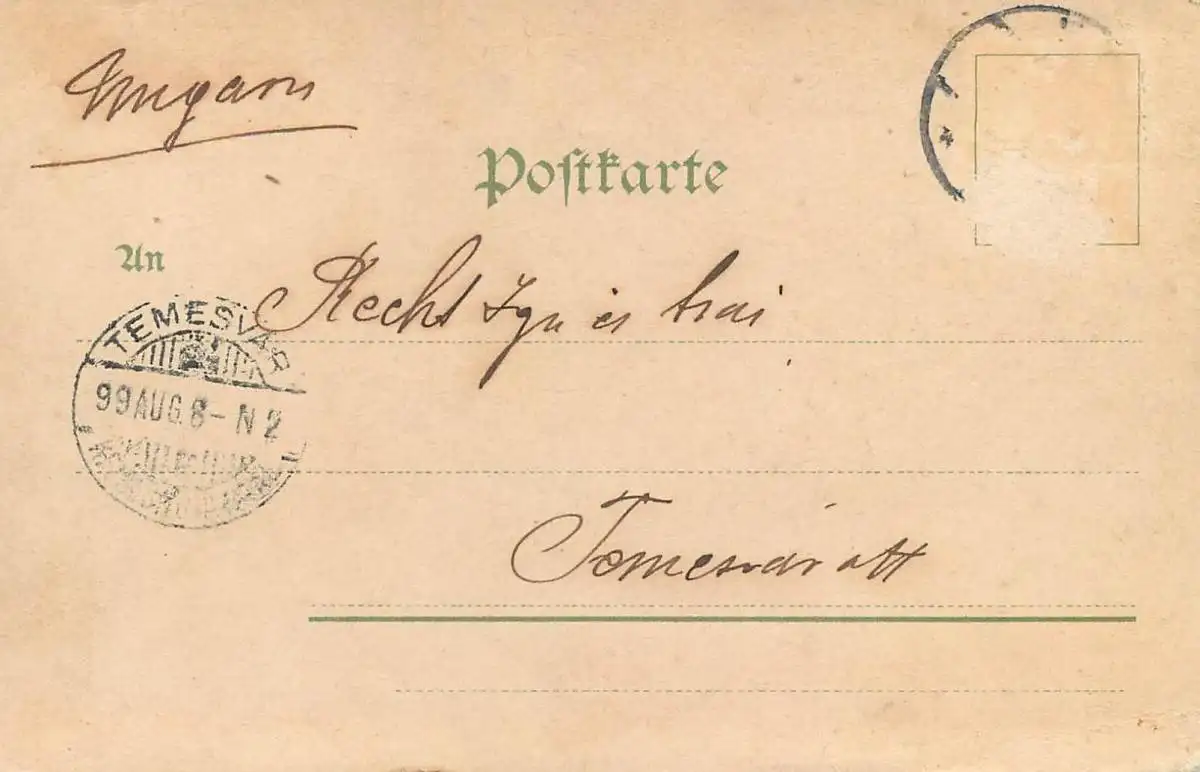 Ungarn
Postkarte
An
Recht Ign és társai
TEMESVÁR
99 AUG. 8 - N 2
Temesvárott